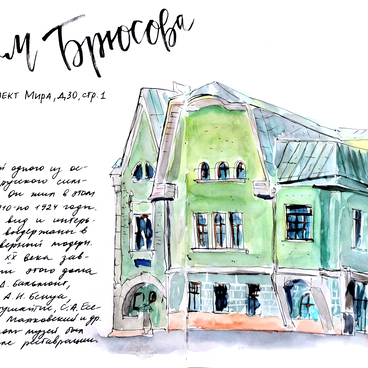 м Брюсова
ект Мира, д.30, стр.1
й одного из ос-
русского сим-
Он жил в этом
910 по 1924 годы.
вид и интерь-
выдержаны в
северный модерн.
XX века зав-
ями этого дома
Д. Бальмонт,
А. И. Белый,
С.А. Есе-
Маяковский и др.
музей был
реставрации.